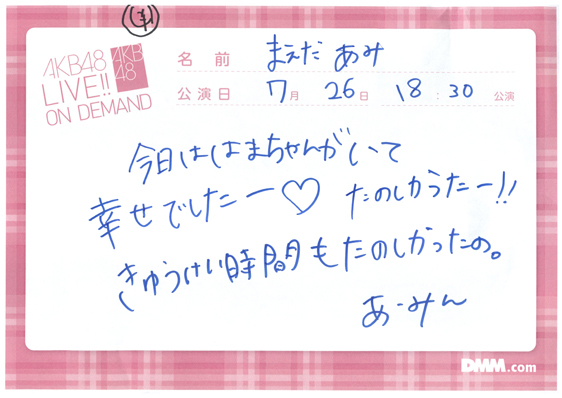 AKB48
LIVE!!
ON DEMAND
AKB
48
名前 まえだ あみ
公演日 7月 26日 18:30 公演
今日ははまちゃんがいて
幸せでしたー♡ たのしかうたー!!
きゅうけい時間もたのしかったの。
あーみん
DMM.com